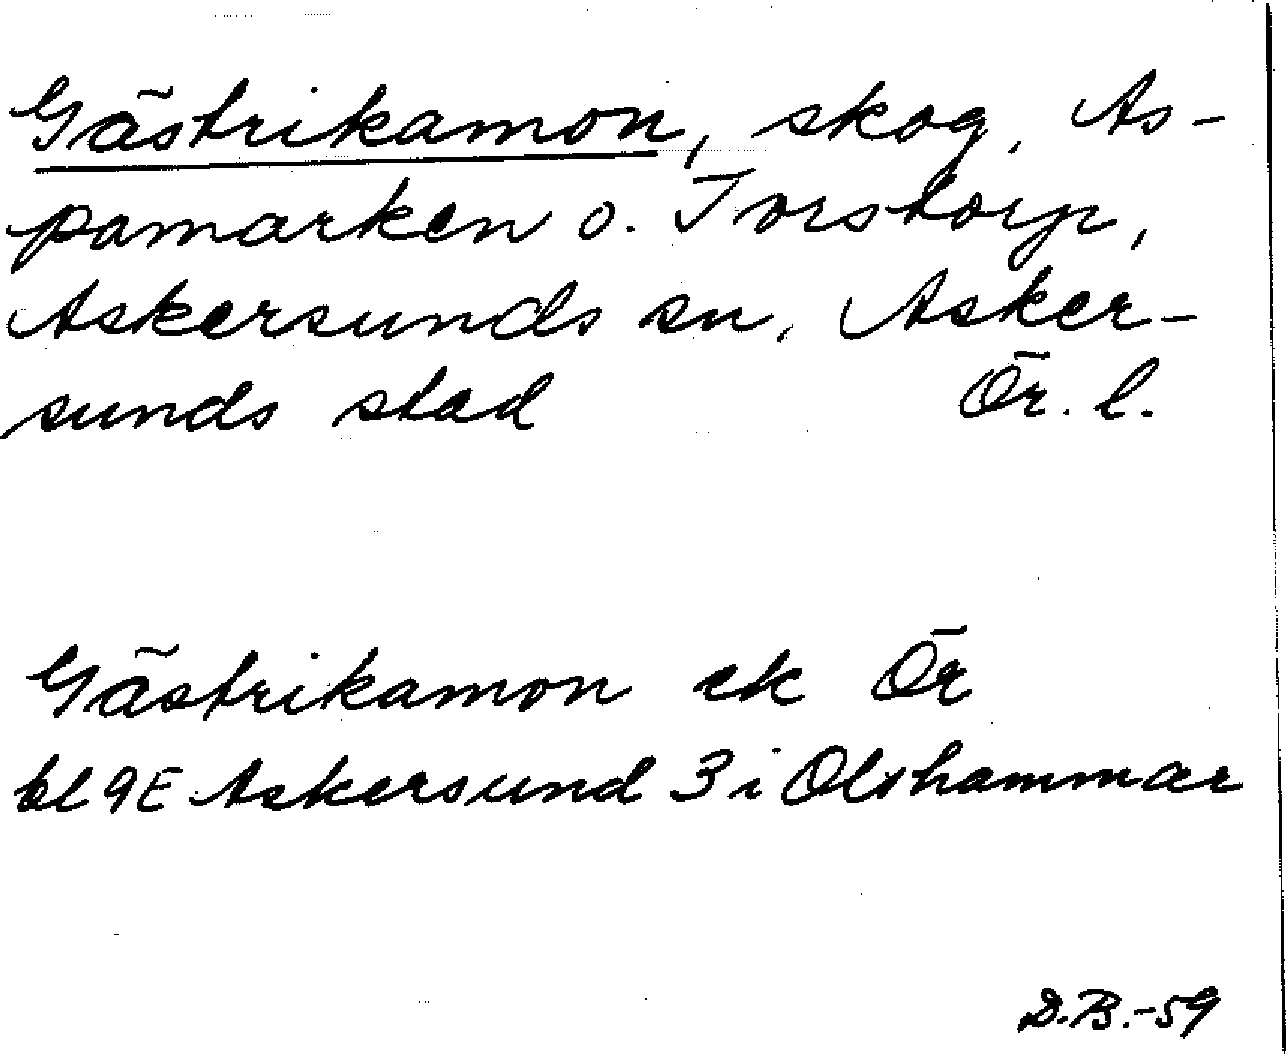 Gästrikamon, skog, As-
pamarken o. Torstorp,
Askersunds sn, Asker-
sunds stad Ör. l.
Gästrikamon ek Ör
bl 9E Askersund 3 i Olshammar
D.B.-59